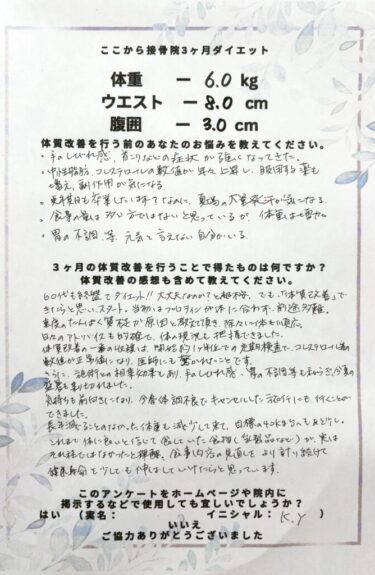 ここから接骨院3ヶ月ダイエット
体重 － 6.0 kg
ウエスト － 8.0 cm
腹囲 － 3.0 cm
体質改善を行う前のあなたのお悩みを教えてください。
・手のしびれ感、首こりなどの症状が強くなってきた。
・中性脂肪、コレステロールの数値が年々上昇し、服用する薬も
増え、副作用が気になる。
・更年期は卒業したはずなのに、夏場の大量発汗が気になる。
・食事の量は多い方ではないと思っているが、体重は
・胃の不調等、元気と言えない自分がいる。
3ヶ月の体質改善を行うことで得たものは何ですか？
体質改善の感想も含めて教えてください。
60代も終盤でダイエット!! 大丈夫なのか？と 不安。でも、「体質改善」で
きたらと思い、スタート。当初はプロテインが体に合わず、前途多難。
重度のたんぱく質 が原因と教えて頂き、徐々に体も順応。
日々のアドバイスも的確で、体の現況も把握できました。
体質改善の一番の収穫は、開始 の定期検査で、コレステロール等の
数値が正常値になり、医師にも驚かれたことです。
さらに、施術との相乗効果もあり、手のしびれ感、胃の不調等も和らぎ、今夏の
猛暑も乗り切れました。
気持ちも前向きになり、今春体調不良でキャンセルした旅行にも行くことが
できました。
長年減ることのなかった体重も減少して来、目標の
これまで体に良いと信じて食していた食物（乳製品など）が、実は
それほどではなかったと理解。食事内容の見直しをより計り続けて
健康寿命を少しでも伸ばしていけたらと思っています。
このアンケートをホームページや院内に
掲示するなどで使用しても宜しいでしょうか？
はい （実名： イニシャル： K.Y ）
いいえ
ご協力ありがとうございました